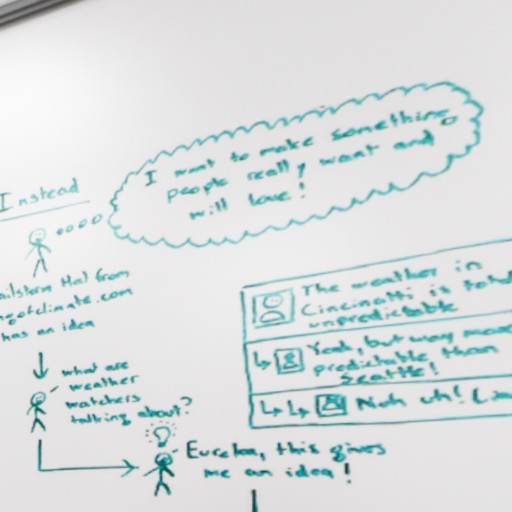 Instead
I want to make something
people really want and
will love!
from
.com
has an idea
what are
weather
watchers
talking about?
Eureka, this gives
me an idea!
The weather in
Cincinatti is
unpredictable
Yeah, but way more
predictable than
Seattle!
Nuh uh!